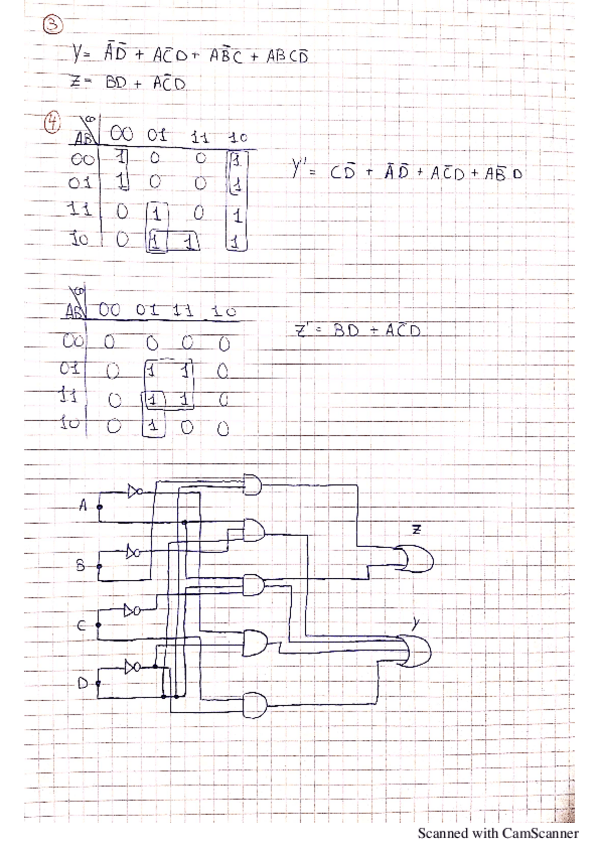 ③
Y = A̅D̅ + AC̅D + AB̅C + ABCD̅
Z = BD + AC̅D
④
CD
AB 00 01 11 10
00 1 0 0 1
01 1 0 0 1
11 0 1 0 1
10 0 1 1 1
Y' = CD̅ + A̅D̅ + AC̅D + AB̅D
CD
AB 00 01 11 10
00 0 0 0 0
01 0 1 1 0
11 0 1 1 0
10 0 1 0 0
Z' = BD + AC̅D
A
Z
B
C
Y
D
Scanned with CamScanner